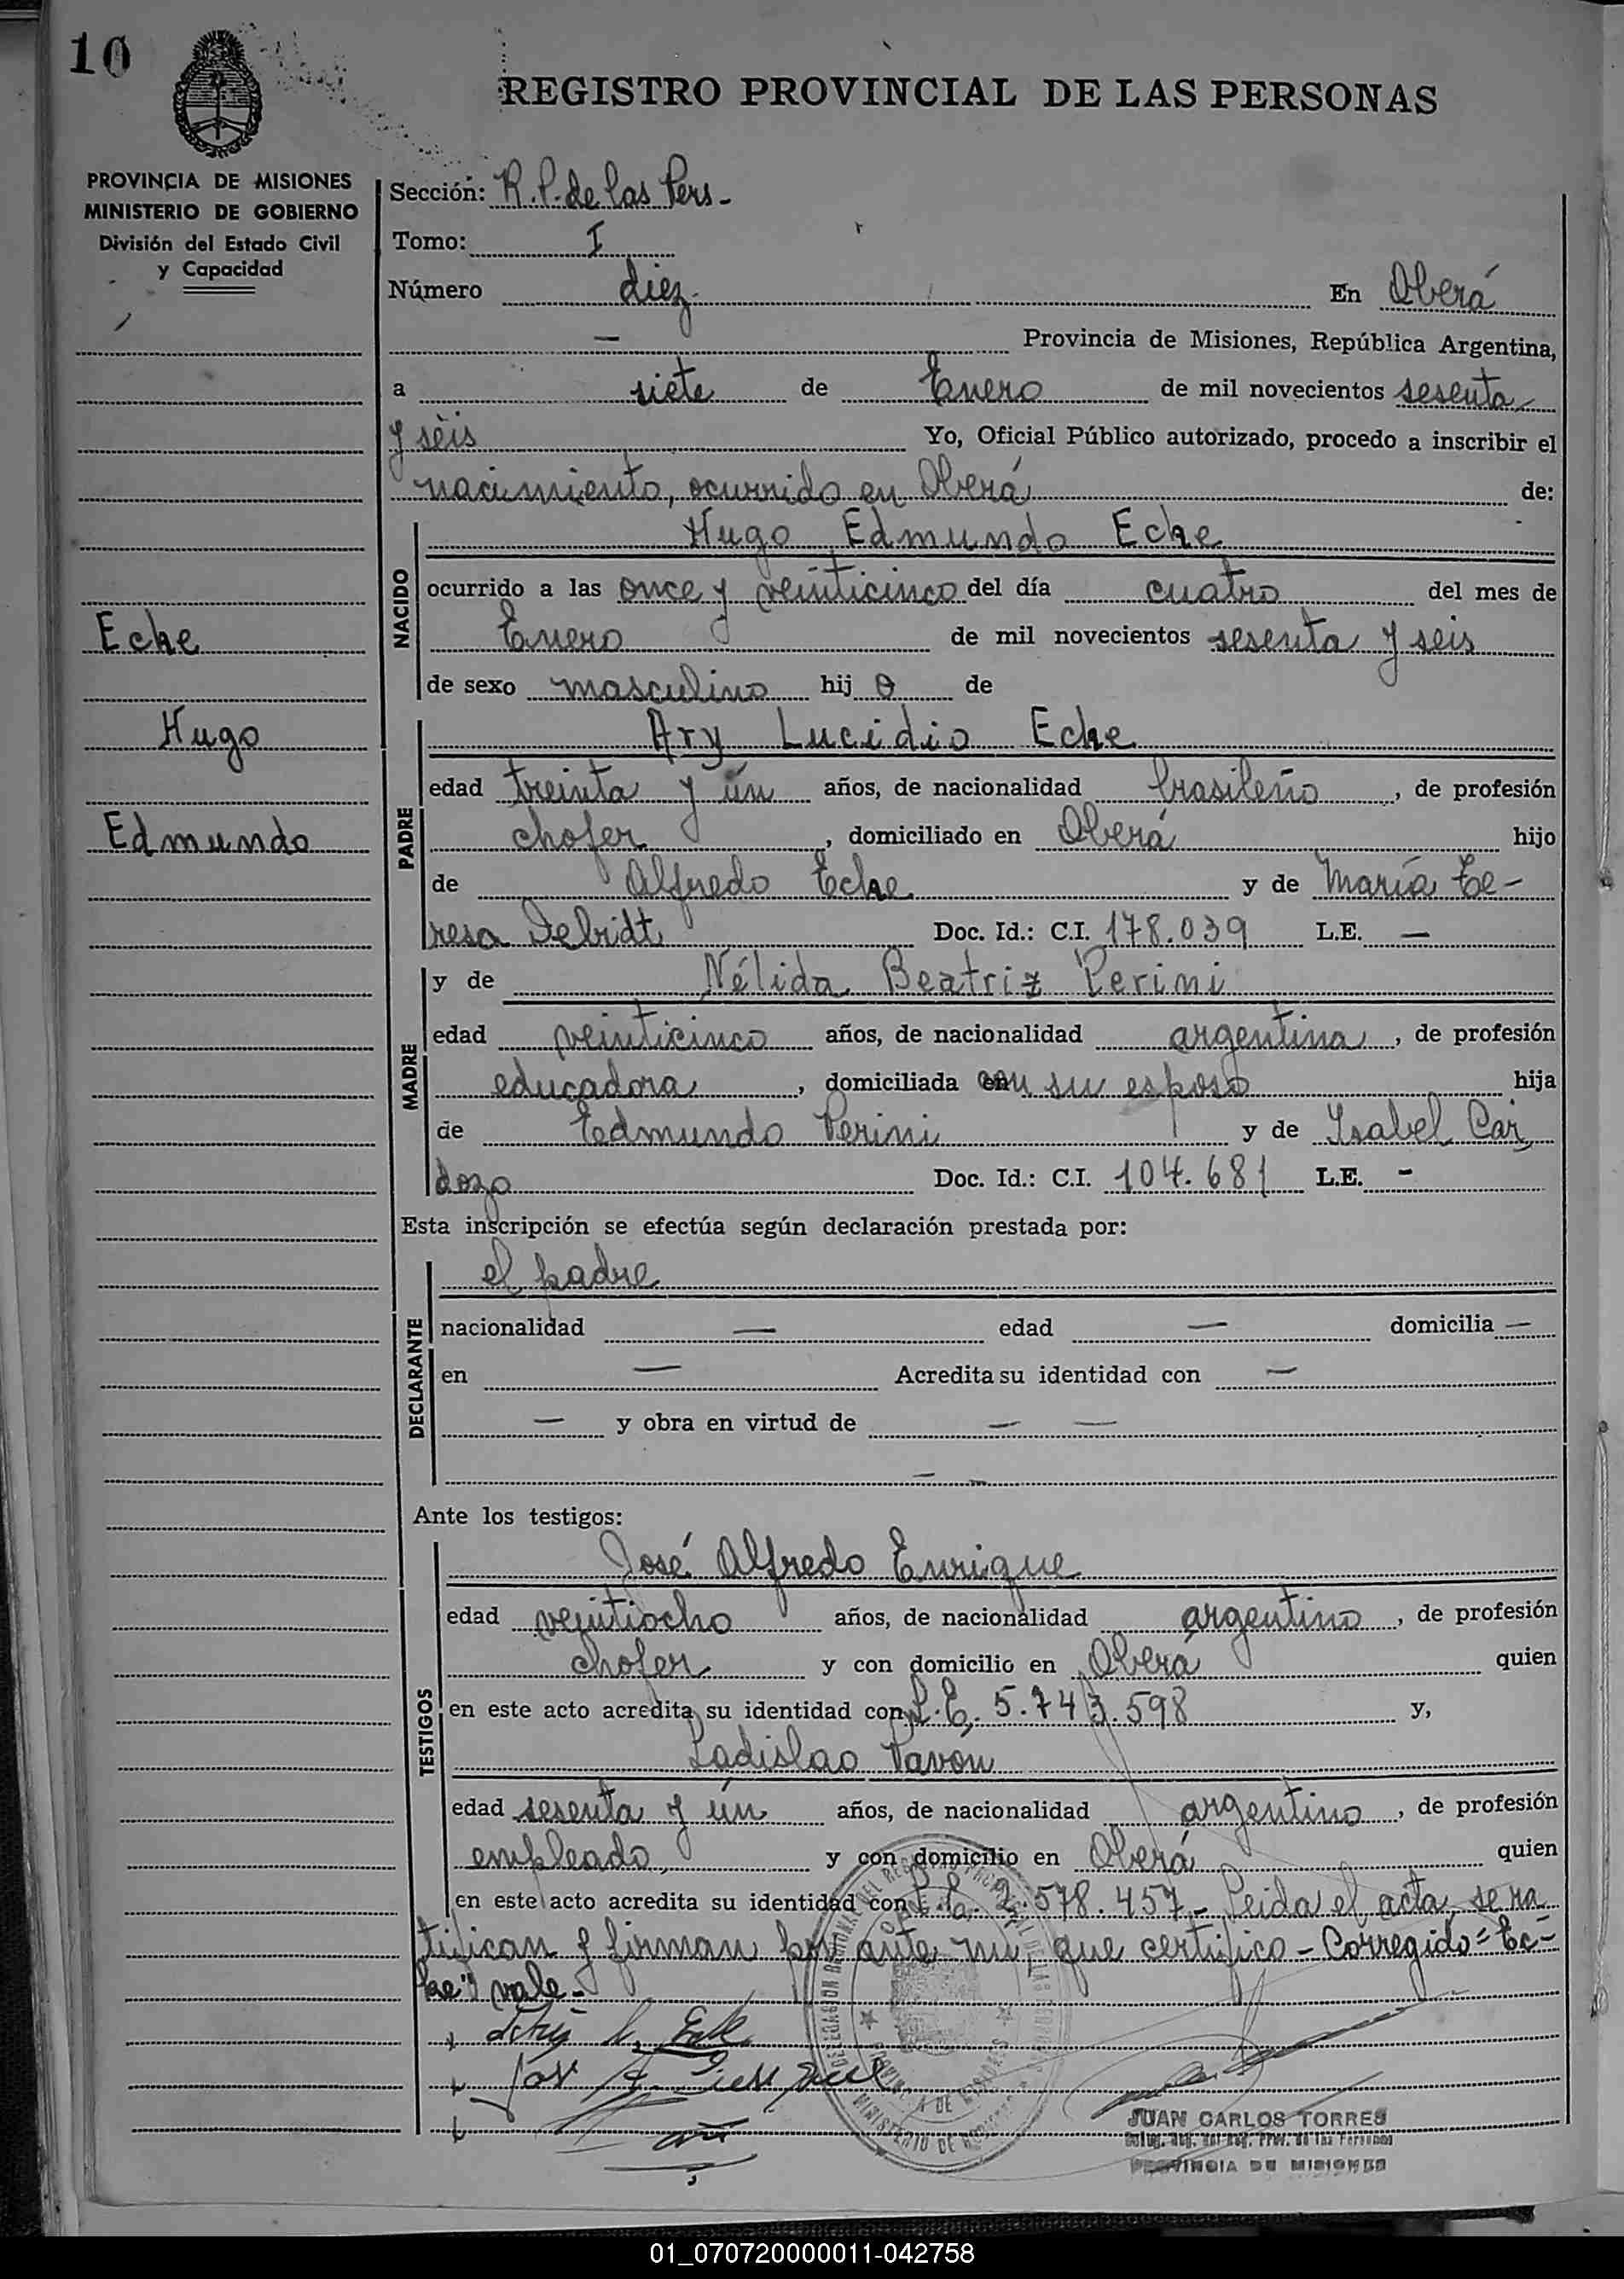 10
REGISTRO PROVINCIAL DE LAS PERSONAS
PROVINCIA DE MISIONES
MINISTERIO DE GOBIERNO
División del Estado Civil
y Capacidad
Sección: R.P. de las Pers-
Tomo: I
Número diez En Oberá
— Provincia de Misiones, República Argentina,
a siete de Enero de mil novecientos sesenta
y seis Yo, Oficial Público autorizado, procedo a inscribir el
nacimiento, ocurrido en Oberá de:
NACIDO
Hugo Edmundo Eche
ocurrido a las once y veinticinco del día cuatro del mes de
Enero de mil novecientos sesenta y seis
de sexo masculino hij o de
Eche
Hugo
Edmundo
PADRE
Ary Lucidio Eche
edad treinta y ún años, de nacionalidad brasileño, de profesión
chofer, domiciliado en Oberá hijo
de Alfredo Eche y de María Te-
resa Debidt Doc. Id.: C.I. 178.039 L.E. —
MADRE
y de Nélida Beatriz Perini
edad veinticinco años, de nacionalidad argentina, de profesión
educadora, domiciliada con su esposo hija
de Edmundo Perini y de Isabel Car
dozo Doc. Id.: C.I. 104.681 L.E. -
Esta inscripción se efectúa según declaración prestada por:
DECLARANTE
el padre
nacionalidad — edad — domicilia —
en — Acredita su identidad con —
— y obra en virtud de — —
— —
Ante los testigos:
TESTIGOS
José Alfredo Enrique
edad veintiocho años, de nacionalidad argentino, de profesión
chofer y con domicilio en Oberá quien
en este acto acredita su identidad con L.E. 5.743.598 y,
Ladislao Pavón
edad sesenta y ún años, de nacionalidad argentino, de profesión
empleado, y con domicilio en Oberá quien
en este acto acredita su identidad con L.E. 2.578.457- Leida el acta, se ra
tifican y firman por ante mi, que certifico - Corregido="Ec-
he" vale-
JUAN CARLOS TORRES
PROVINCIA DE MISIONES
01_070720000011-042758